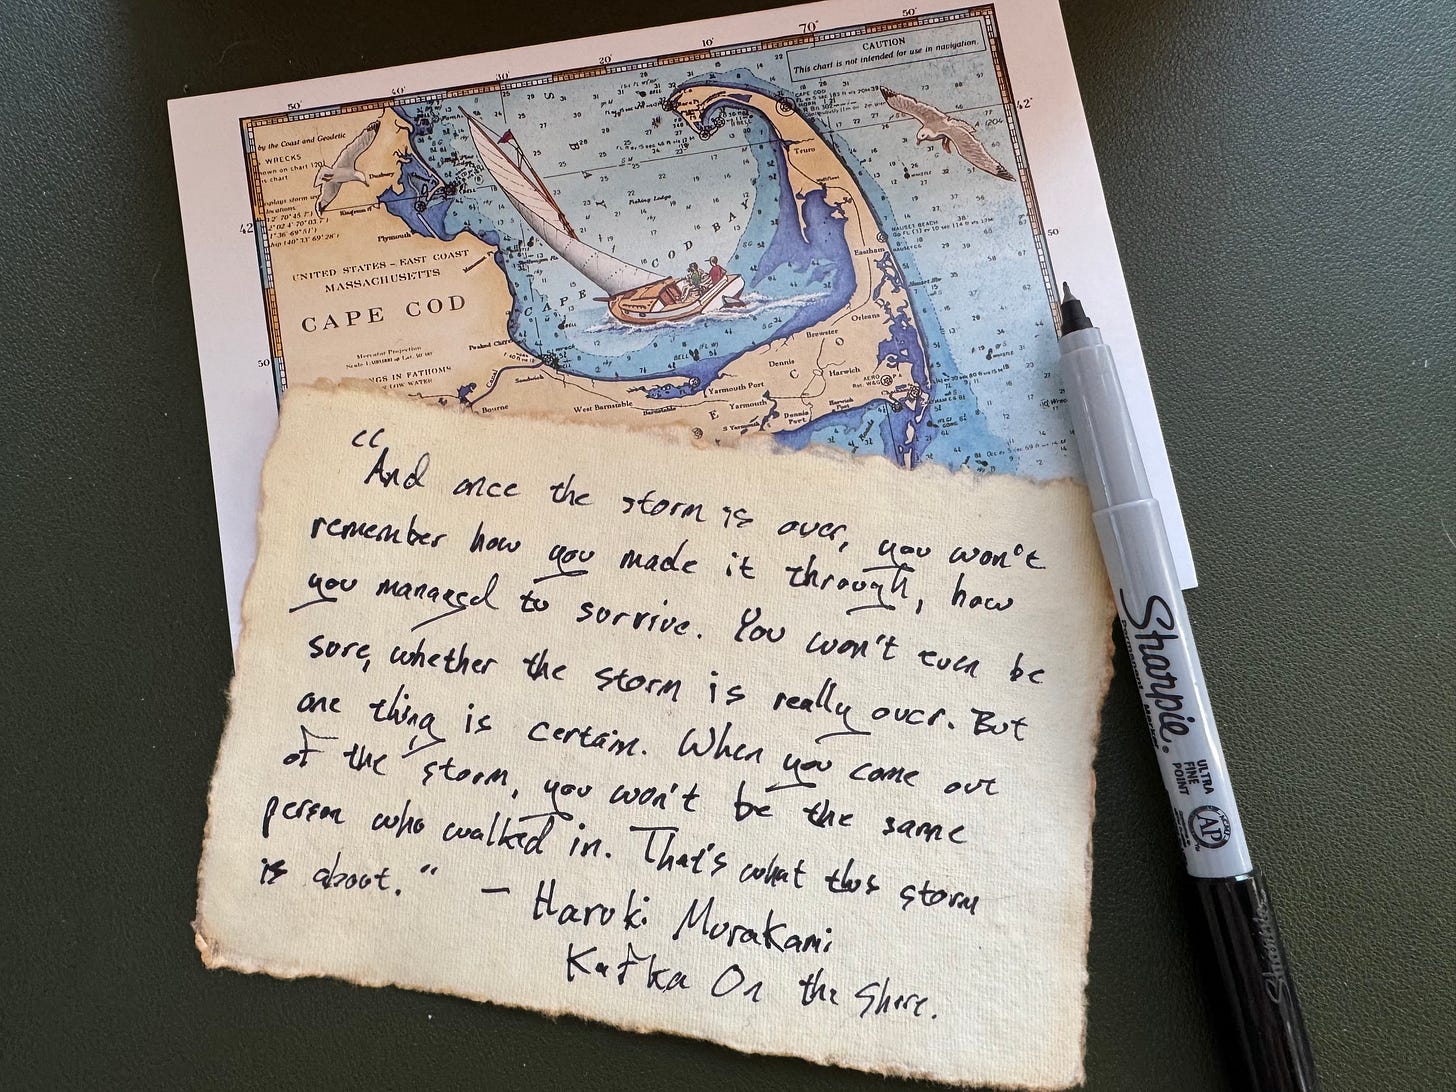 50'
40'
30'
20'
10'
70°
50'
CAUTION
This chart is not intended for use in navigation.
42°
by the Coast and Geodetic
WRECKS
Duxbury
Kingston
Plymouth
42°
UNITED STATES – EAST COAST
MASSACHUSETTS
CAPE COD
Mercator Projection
50'
IN FATHOMS
LOW WATER
CAPE COD BAY
Fishing Ledge
CAPE COD
Truro
NAUSET BEACH
Eastham
50'
Orleans
Brewster
Dennis
Harwich
AERO
Peaked Cliff
Sandwich
Bourne
West Barnstable
Barnstable
Yarmouth Port
Yarmouth
S Yarmouth
Dennis
Port
Harwich
Port
BELL
“And once the storm is over, you won't
remember how you made it through, how
you managed to survive. You won't even be
sure, whether the storm is really over. But
one thing is certain. When you come out
of the storm, you won't be the same
person who walked in. That's what this storm
is about." – Haruki Murakami
Kafka On the Shore.
Sharpie.
PERMANENT MARKER
ULTRA
FINE
POINT
AP
Sharpie